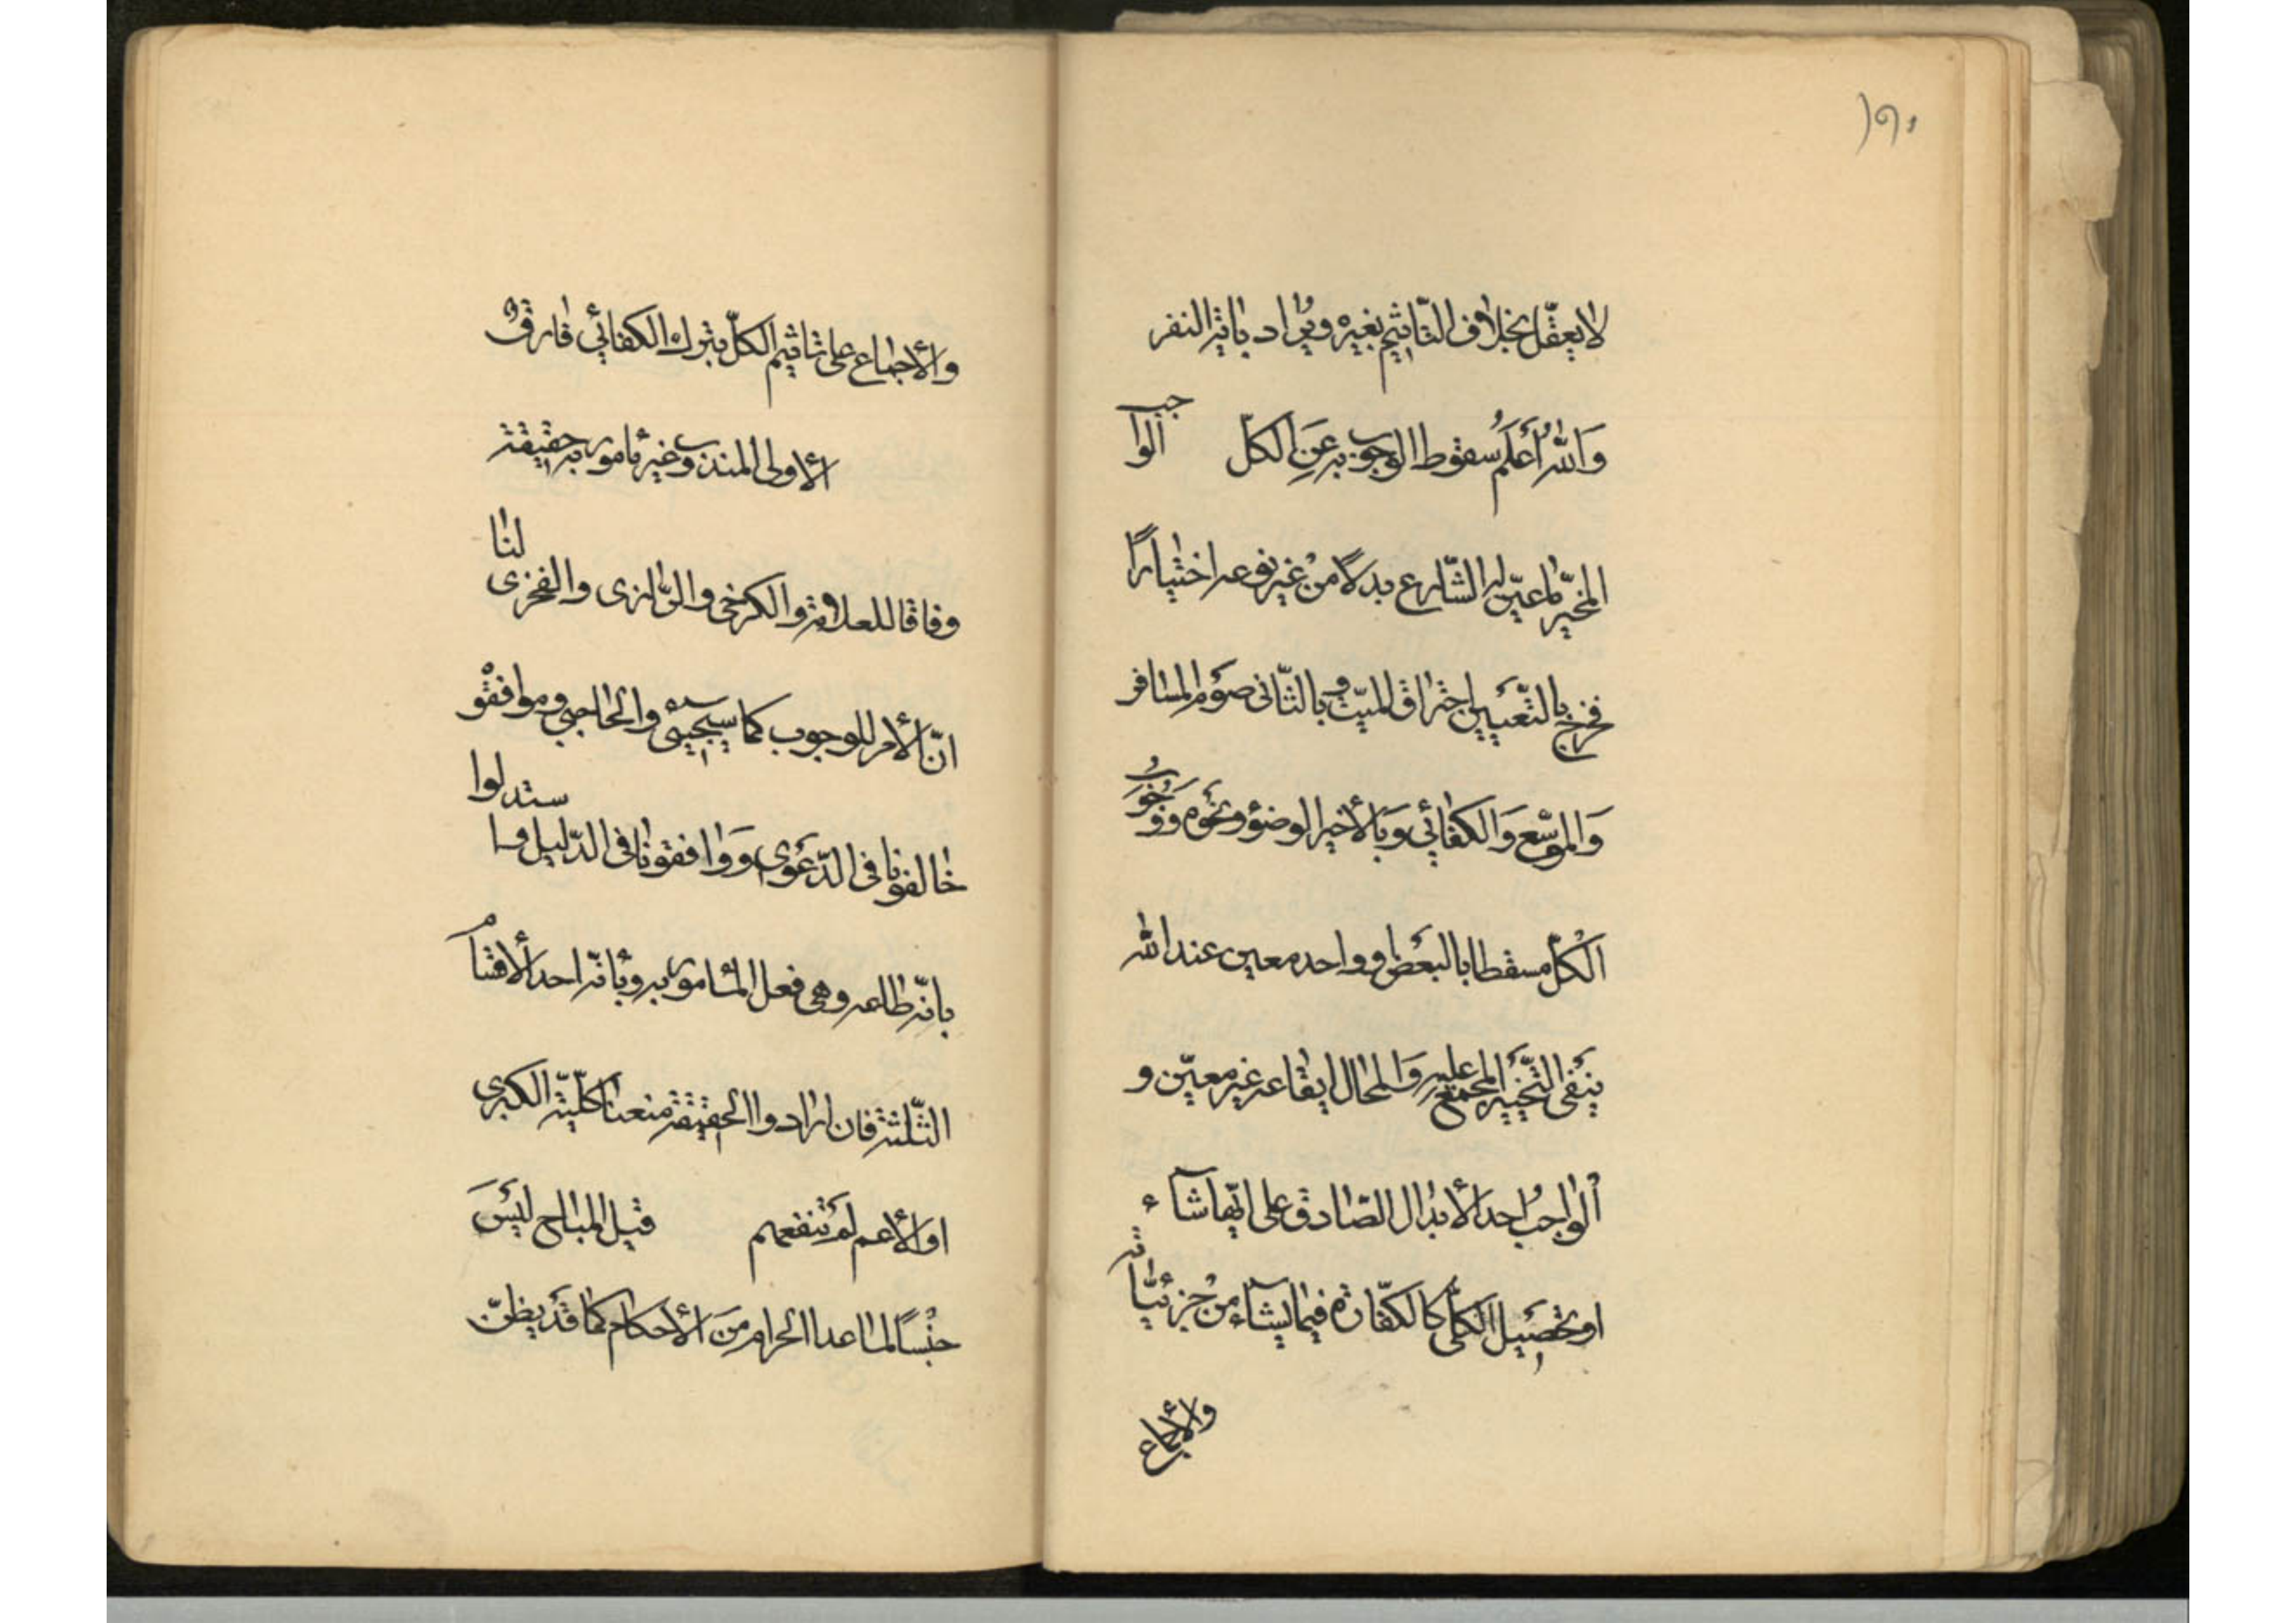 ١٩٠
لا يعقل بخلاف التّأثيم بغيره ويراد بآية النفر
وَاللّٰهُ أَعْلَمُ سقوط الوجوب به عَنِ الكلّ الواجب
المخيّر ما عيّن له الشّارع بدلاً من غير نوعه اختيارًا
فخرج بالتّعيين احتراق الميّت وبالثّاني صَوم المسافر
وَالموسّع وَالكفائي وَبالأخير الوضوء ونحوه ووُجُوبُ
الكُلّ مسقطا بالبعض وواحد معين عند اللّٰه
ينفى التّخيير المجمع عليه وَالمحال ايقاعه غير معيّن و
الواجبُ احد الأبدال الصّادق على ايّها شآء
او تحصيل الكلّي كالكفّارة فيما يشآء من جزئيّاته
والأجماع
والأجماع على تاثيم الكلّ بترك الكفائي فارقٌ
الأولى المندوب غير مأمور به حقيقة
وفاقا للعلامة والكرخي والرّازى والفخرى لنا
انّ الأمر للوجوب كما سيجيئ والحاجبي وموافقوْ
خالفونا في الدّعوى ووافقونا في الدّليل واستدلوا
بانّه طاعه وهي فعل المأمور به وبأنّه احد الأقسام
الثّلثة فان ارادوا الحقيقة منعنا كلّية الكبرى
او الأعم لم تنفعهم قيل المباح ليْسَ
جنْسًا لما عدا الحرام مِنَ الأحكام كما قَدْ يظنّ